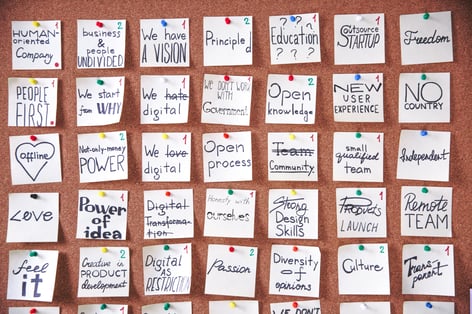 HUMAN-
oriented
Company
2
business
&
people
UNDIVIDED
1
We have
A VISION
2
Principled
1
Education
? ? ?
? ? ?
1
Outsource
STARTUP
Freedom
PEOPLE
FIRST
2
We start
from WHY
1
We hate
digital
1
WE DON'T WORK
WITH
Government!
2
Open
knowledge
NEW
USER
EXPERIENCE
NO
COUNTRY
offline
2
Not-only-money
POWER
1
We love
digital
1
Open
process
1
Team
Community
1
small
qualified
team
Independent
Love
1
Power
of
idea
Digital
Transformation
Honesty with
ourselves
Strong
Design
Skills
1
Products
LAUNCH
REMOTE
TEAM
feel
it
2
Creative in
PRODUCT
development
1
Digital
AS
RESTRICTION
Passion
1
Diversity
of
opinions
2
Culture
Transparent
1
WE DON'T